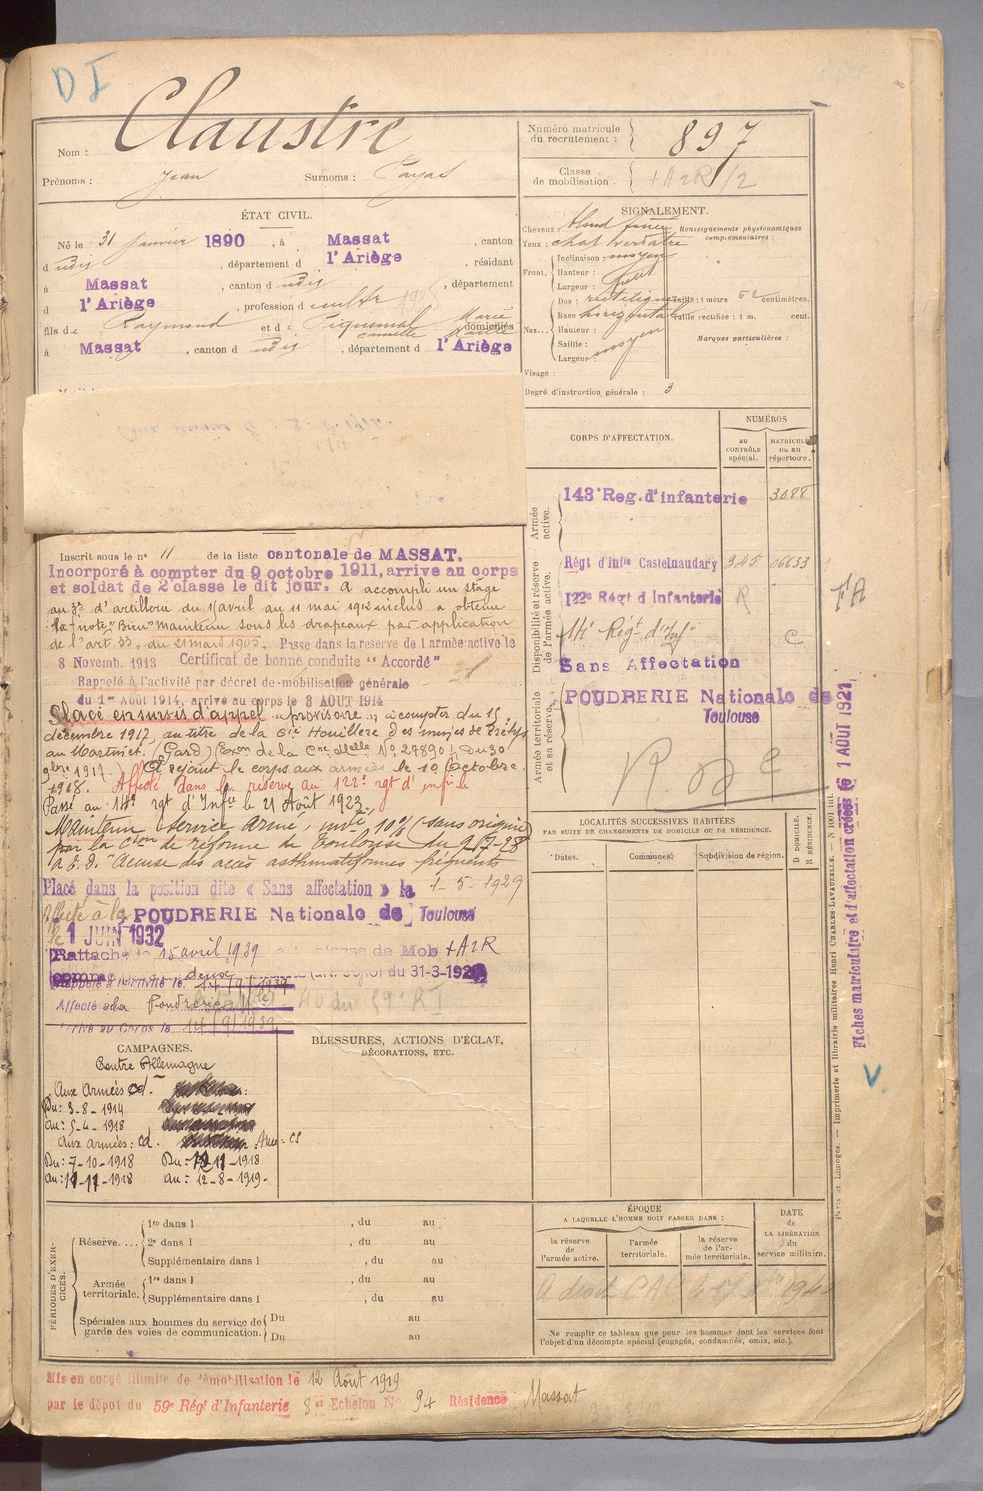 D I
Claustre
Nom :
Prénoms : Jean Surnoms :
Numéro matricule du recrutement : 897
Classe de mobilisation. +A2R /2
ÉTAT CIVIL.
Né le 31 Janvier 1890, à Massat, canton
d udis, département d l'Ariège, résidant
à Massat, canton d udis, département
d l'Ariège, profession d cultr 
fils de Raymond et de Piquemal Marie domiciliés
à Massat, canton d udis, département d l'Ariège
SIGNALEMENT.
Cheveux : blond foncé
Yeux : chat verdâtre
Renseignements physionomiques complémentaires :
Front. Inclinaison : moyen
Hauteur :
Largeur : petit
Nez Dos : rectiligne
Base horizontale
Hauteur :
Saillie :
Largeur : moyen
Taille : 1 mètre 62 centimètres.
Taille rectifiée : 1 m. cent.
Marques particulières :
Visage :
Degré d'instruction générale : 3
CORPS D'AFFECTATION.
NUMÉROS
au CONTRÔLE spécial.
MATRICULE ou au répertoire.
Armée active.
143e Reg. d'infanterie 3088
Disponibilité et réserve de l'armée active.
Régt d'infie Castelnaudary 345
122e Régt d Infanterie R
14e Regt d'Inf C
Sans Affectation
Armée territoriale et sa réserve.
POUDRERIE Nationale de
Toulouse
FA
Inscrit sous le no 11 de la liste cantonale de MASSAT.
Incorporé à compter du 9 octobre 1911, arrive au corps
et soldat de 2e classe le dit jour. A accompli un stage
au 3e d'artillerie du 1r avril au 11 mai 1912 inclus a obtenu
la note "Bien" maintenu sous les drapeaux par application
de l'art. 33, du 21 mars 1905. Passe dans la reserve de l'armée active le
8 Novemb. 1913 Certificat de bonne conduite "Accordé"
Rappelé à l'activité par décret de mobilisation générale
du 1er Août 1914, arrivé au corps le 3 AOUT 1914
Placé en sursis d'appel "provisoire" à compter du 15
décembre 1917, au titre de la Cie Houillère des mines de
au Martinet (Gard) Exon de la Cne Melle No 27890 du 30
9bre 1917. A rejoint le corps aux armées le 10 Octobre
1918. Affecté dans la réserve au 122e rgt d'infie
Passé au 14e rgt d'Infie le 21 Août 1923.
Maintenu service armé, invté 10% (sans origine)
par la Cion de réforme de Toulouse du 9-7-28
"Accuse des accès asthmatiformes fréquents
Placé dans la position dite « Sans affectation » le 1-5-1929
Affecté à la POUDRERIE Nationale de Toulouse
le 1 JUIN 1932
Rattaché le 15 avril 1939 classe de Mob +A2R
deux du 31-3-1928
Rappelé à l'activité le 14/9/1939
Affecté à la Poudrerie
Arrivé au Corps le 14/9/1939
CAMPAGNES.
Contre Allemagne
Aux Armées cd.
Du : 3-8-1914
Au : 5-4-1918
Aux armées : cd.
Du : 7-10-1918 Du : 12-11-1918
Au : 11-11-1918 Au : 12-8-1919
BLESSURES, ACTIONS D'ÉCLAT,
DÉCORATIONS, ETC.
LOCALITÉS SUCCESSIVES HABITÉES
PAR SUITE DE CHANGEMENTS DE DOMICILE OU DE RÉSIDENCE.
Dates. Communes. Subdivision de région.
D DOMICILE.
R RÉSIDENCE.
PÉRIODES D'EXERCICES.
Réserve.... 1re dans l , du au
2e dans l , du au
Supplémentaire dans l , du au
Armée territoriale. 1re dans l , du au
Supplémentaire dans l , du au
Spéciales aux hommes du service de garde des voies de communication. Du au
Du au
ÉPOQUE
A LAQUELLE L'HOMME DOIT PASSER DANS :
la réserve de l'armée active.
l'armée territoriale.
la réserve de l'armée territoriale.
DATE de LA LIBÉRATION du service militaire.
A droit CAC
Ne remplir ce tableau que pour les hommes dont les services font
l'objet d'un décompte spécial (engagés, condamnés, omis, etc.).
Mis en congé illimité de démobilisation le 12 Août 1919
par le dépot du 59e Régt d'Infanterie 8e Echelon No 94 Résidence Massat
Fiches matriculaire et d'affectation créées le 1 AOUT 1921
V.
Paris et Limoges. — Imprimerie et librairie militaires Henri CHARLES-LAVAUZELLE.